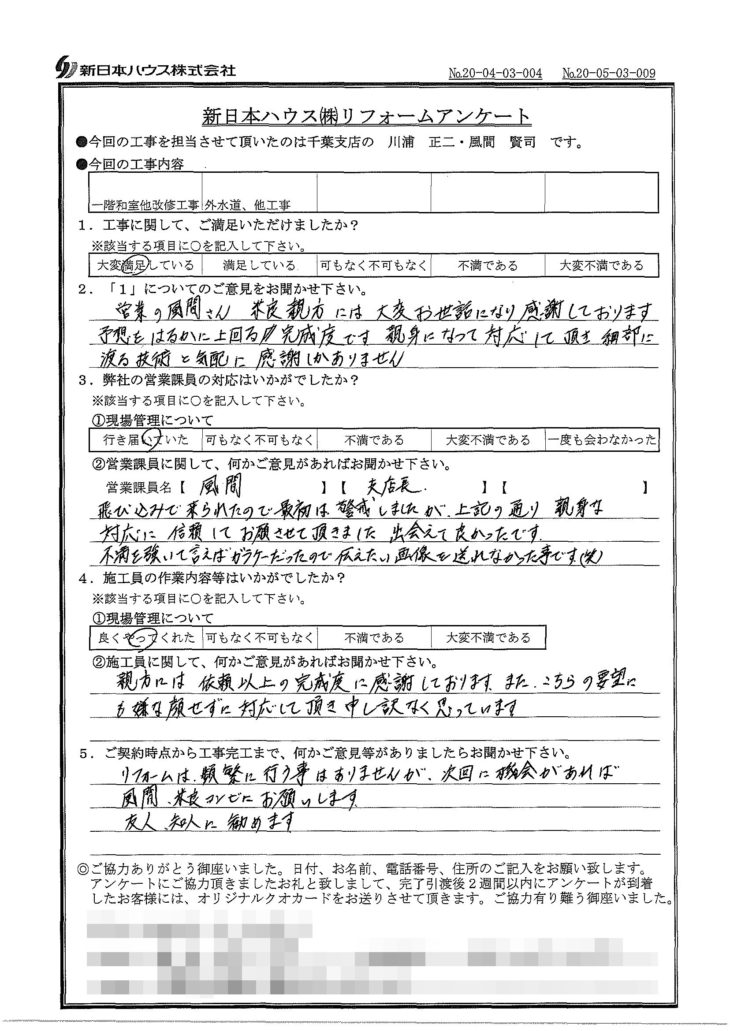 新日本ハウス株式会社
No.20-04-03-004 No.20-05-03-009
新日本ハウス㈱リフォームアンケート
●今回の工事を担当させて頂いたのは千葉支店の 川浦 正二・風間 賢司 です。
●今回の工事内容
一階和室他改修工事 外水道、他工事
1．工事に関して、ご満足いただけましたか？
※該当する項目に○を記入して下さい。
大変満足している 満足している 可もなく不可もなく 不満である 大変不満である
2．「1」についてのご意見をお聞かせ下さい。
営業の風間さん 米良親方には 大変お世話になり感謝しております
予想をはるかに上回る完成度です 親身になって対応して頂き 細部に
渡る技術と気配に感謝しかありません
3．弊社の営業課員の対応はいかがでしたか？
※該当する項目に○を記入して下さい。
①現場管理について
行き届いていた 可もなく不可もなく 不満である 大変不満である 一度も会わなかった
②営業課員に関して、何かご意見があればお聞かせ下さい。
営業課員名【 風間 】【 支店長. 】【 】
飛び込みで来られたので最初は警戒しましたが、上記の通り 親身な
対応に 信頼してお願させて頂きました 出会えて良かったです.
不満を強いて言えばガラケーだったので伝えたい画像を送れなかった事です(笑)
4．施工員の作業内容等はいかがでしたか？
※該当する項目に○を記入して下さい。
①現場管理について
良くやってくれた 可もなく不可もなく 不満である 大変不満である
②施工員に関して、何かご意見があればお聞かせ下さい。
親方には 依頼以上の完成度に感謝しております. また、こちらの要望に
も嫌な顔せずに対応して頂き申し訳なく思っています
5．ご契約時点から工事完工まで、何かご意見等がありましたらお聞かせ下さい。
リフォームは、頻繁に行う事はありませんが、次回に機会があれば
風間、米良コンビにお願いします
友人、知人に勧めます
◎ご協力ありがとう御座いました。日付、お名前、電話番号、住所のご記入をお願い致します。
アンケートにご協力頂きましたお礼と致しまして、完了引渡後2週間以内にアンケートが到着
したお客様には、オリジナルクオカードをお送りさせて頂きます。ご協力有り難う御座いました。